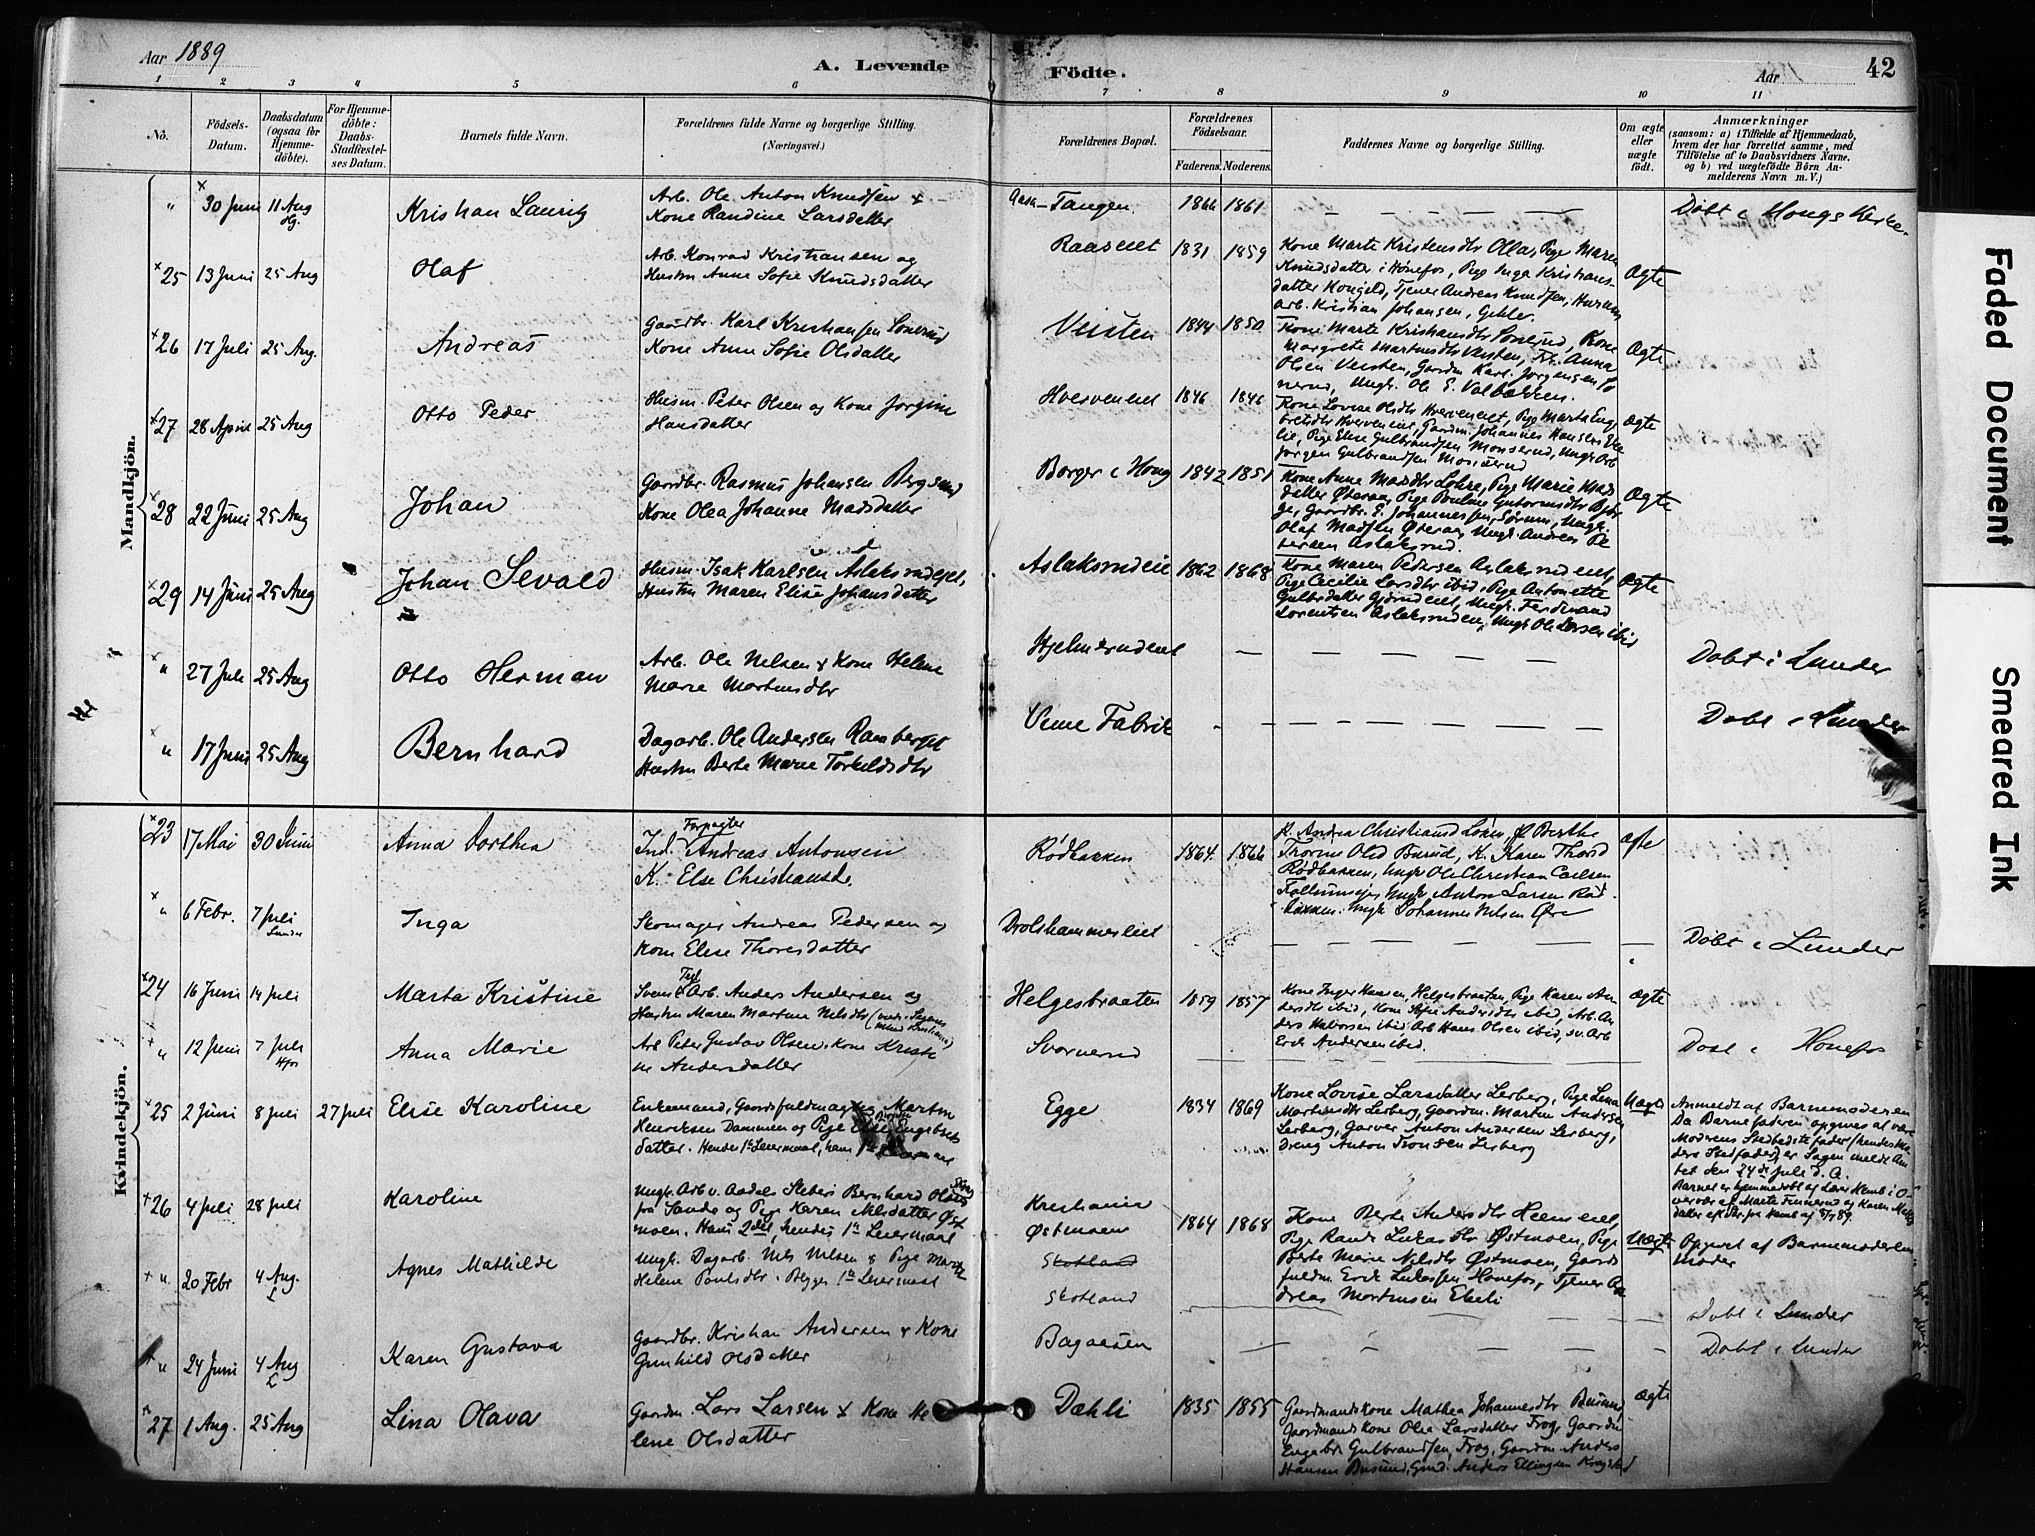 Aar 1889
A. Levende Födte.
Aar
42
1 2 3 4 5 6 7 8 9 10 11
No.
Födsels-Datum.
Daabsdatum (ogsaa for Hjemme-döbte).
For Hjemme-döbte: Daabs-Stadfestel-ses Datum.
Barnets fulde Navn.
Forældrenes fulde Navne og borgerlige Stilling. (Næringsvei.)
Forældrenes Bopæl.
Forældrenes Födselsaar.
Faderens. Moderens.
Faddernes Navne og borgerlige Stilling.
Om ægte eller uægte födt.
Anmærkninger
(saasom: a) i Tilfælde af Hjemmedaab,
hvem der har forrettet samme, med
Tilföielse af to Daabsvidners Navne,
og b) ved uægtefödte Börn An-
melderens Navn m. V.)
Mandkjön.
" 30 Juni 11 Aug Kristian Lauritz Arb. Ole Anton Knudsen &
Kone Randine Larsdatter Tangen 1866 1861 Døbt i Houg Kirke
25 13 Juni 25 Aug Olaf Arb. Konrad Kristiansen og
Hustru Anne Sofie Knudsdatter Raaseiet 1831 1859 Kone Marte Kristensdtr Olla, Pige Maren
Knudsdatter i Hønefos, Pige Inga Kristians-
datter Hougeld, Tjener Andreas Knudsen,
Arb. Kristian Johansen, Ægte
26 17 Juli 25 Aug. Andreas Gaardbr. Karl Kristiansen
Kone Anne Sofie Olsdatter Veisten 1844 1850 Kone Marte Kristiansdtr Kone
Margrete Martinsdtr Veisten, Frk. Anna
Olsen Veisten, Gaardm Karl Jørgensen
Ungk. Ole E. Valbækken. Ægte
27 28 April 25 Aug Otto Peder Husm. Peter Olsen og Kone Jørgine
Hansdatter Hverveneiet 1846 1846 Kone Lovise Olsdtr Hverveneiet, Pige Marta
Hverveneiet, Gaardm. Johannes Hansen
Pige Elise Gulbrandsen Monserud, Ungk Arb
Jørgen Gulbrandsen Monserud Ægte
28 22 Juni 25 Aug Johan Gaardbr. Rasmus Johansen Bergsund
Kone Olea Johanne Madsdatter Borger i Houg 1842 1851 Kone Anne Madsdtr Lohre, Pige Marie Mads
datter Pige Pauline Guttormsdtr
Gaardbr. E. Johannessen, Sørum, Ungk.
Olaf Madsen Ungk. Andreas Pe
tersen Aslaksrud. Ægte
29 14 Juni 25 Aug Johan Sevald Husm. Isak Karlsen Aslaksrudeiet,
Hustru Maren Elise Johansdatter Aslaksrudeie 1862 1868 Kone Maren Pedersen Aslaksrudeiet,
Pige Cecilie Larsdtr ibid, Pige Antonette
Gulbrdatter Ungk. Ferdinand
Lorentsen Aslaksrudeie, Ungk Ole Larsen ibid Ægte
" 27 Juli 25 Aug Otto Herman Arb. Ole Nelsen & Kone Helene
Marie Martinsdtr Hjelmerudeiet Døbt i Lunder
" 17 Juni 25 Aug Bernhard Dagarb. Ole Andersen Ramberget
Hustru Berte Marie Torkildsdtr Veme Fabrik Døbt i Lunder
Kvindekjön.
23 17 Mai 30 Juni Anna Dorthea Forpagter
Ind. Andreas Antonsen
K. Else Christiansd. Rødbakken 1864 1866 K. Andrea Christiansd P. Berthe
Thorine Olsd Burud, K. Karen Thorsd
Rødbakken, Ungk Ole Christian Carlsen
Ungk Anton Larsen Rød
bakken. Ungk Johannes Nilsen Øvre ægte
" 6 Febr. 7 Juli Lunder Inga Skomager Andreas Pedersen og
Kone Elise Thoresdatter Drolshammereiet Døbt i Lunder
24 16 Juni 14 Juli Marta Kristine Arb. Anders Andersen og
Hustru Maren Martine Nilsdtr Helgesbraaten 1859 1857 Kone Inger Hansen, Helgesbraaten, Pige Karen An
dersdtr ibid, Kone Sofie Andersdtr ibid, Arb. An
ders Halvorsen ibid Arb Hans Olsen ibid, Arb
Erik Andersen ibid. ægte
" 12 Juni 7 Juli Hfos Anna Marie Arb Peter Gustav Olsen, Kone Kristi
ne Andersdatter Svarverud Døbt i Hønefos
25 2 Juni 8 Juli 27 Juli Elise Karoline Enkemand, Gaardsfuldmægtig Martin
Henriksen Dammen og Pige Engebrets
datter. Hendes 1ste Leiermaal, hans Egge 1834 1869 Kone Lovise Larsdatter Lerberg, Pige Lina
Martinsdtr Lerberg, Gaardm. Martin Andersen
Lerberg, Garver Anton Andersen Lerberg,
Dreng Anton Tronsen Lerberg Uægte Anmeldt af Barnemoderen
Da Barnefaderen opgives at være
Moderens Stedbedstefader (hendes Mo
ders Stedfader) er Sagen meldt Am
tet den 24de Juli d. A.
Barnet er hjemmedøbt af
26 4 Juli 28 Juli Karoline Ungk. Arb v. Aadals Sliberi Bernhard Olsen
fra Sande og Pige Karen Nilsdatter Øst
moen. Hans 2det, hendes 1ste Leiermaal Kristiania
Østmoen 1864 1868 Kone Berte Andersdtr Heieneiet,
Pige Randi Lukasdtr Østmoen, Pige
Berte Marie Nilsdtr Østmoen, Gaards
fuldm Erik Lukassen Hønefos, Tjener An
dreas Mortensen Ekeli Uægte Opgivet af Barnemoderens
Moder
" 20 Febr 4 Aug. L Agnes Mathilde Ungk. Dagarb. Nils Nilsen & Pige Marte
Helene Poulsdtr. Begges 1ste Leiermaal Skotland
Skotland Døbt i Lunder
" 24 Juni 4 Aug L Karen Gustava Gaardbr. Kristian Andersen & Kone
Gunhild Olsdatter Bagaasen Døbt i Lunder
27 1 Aug. 25 Aug Lina Olava Gaardm Lars Larsen & Kone He
lene Olsdatter Dæhli 1835 1855 Gaardmandskone Mathea Johannesdtr Busund
Gaardmandskone Olia Larsdatter Frog, Gaardm
Engebr. Gulbrandsen, Frog, Gaardm Anders
Hansen Busund, Gmd. Anders Ellingsen Kragstad ægte
Faded Document
Smeared Ink